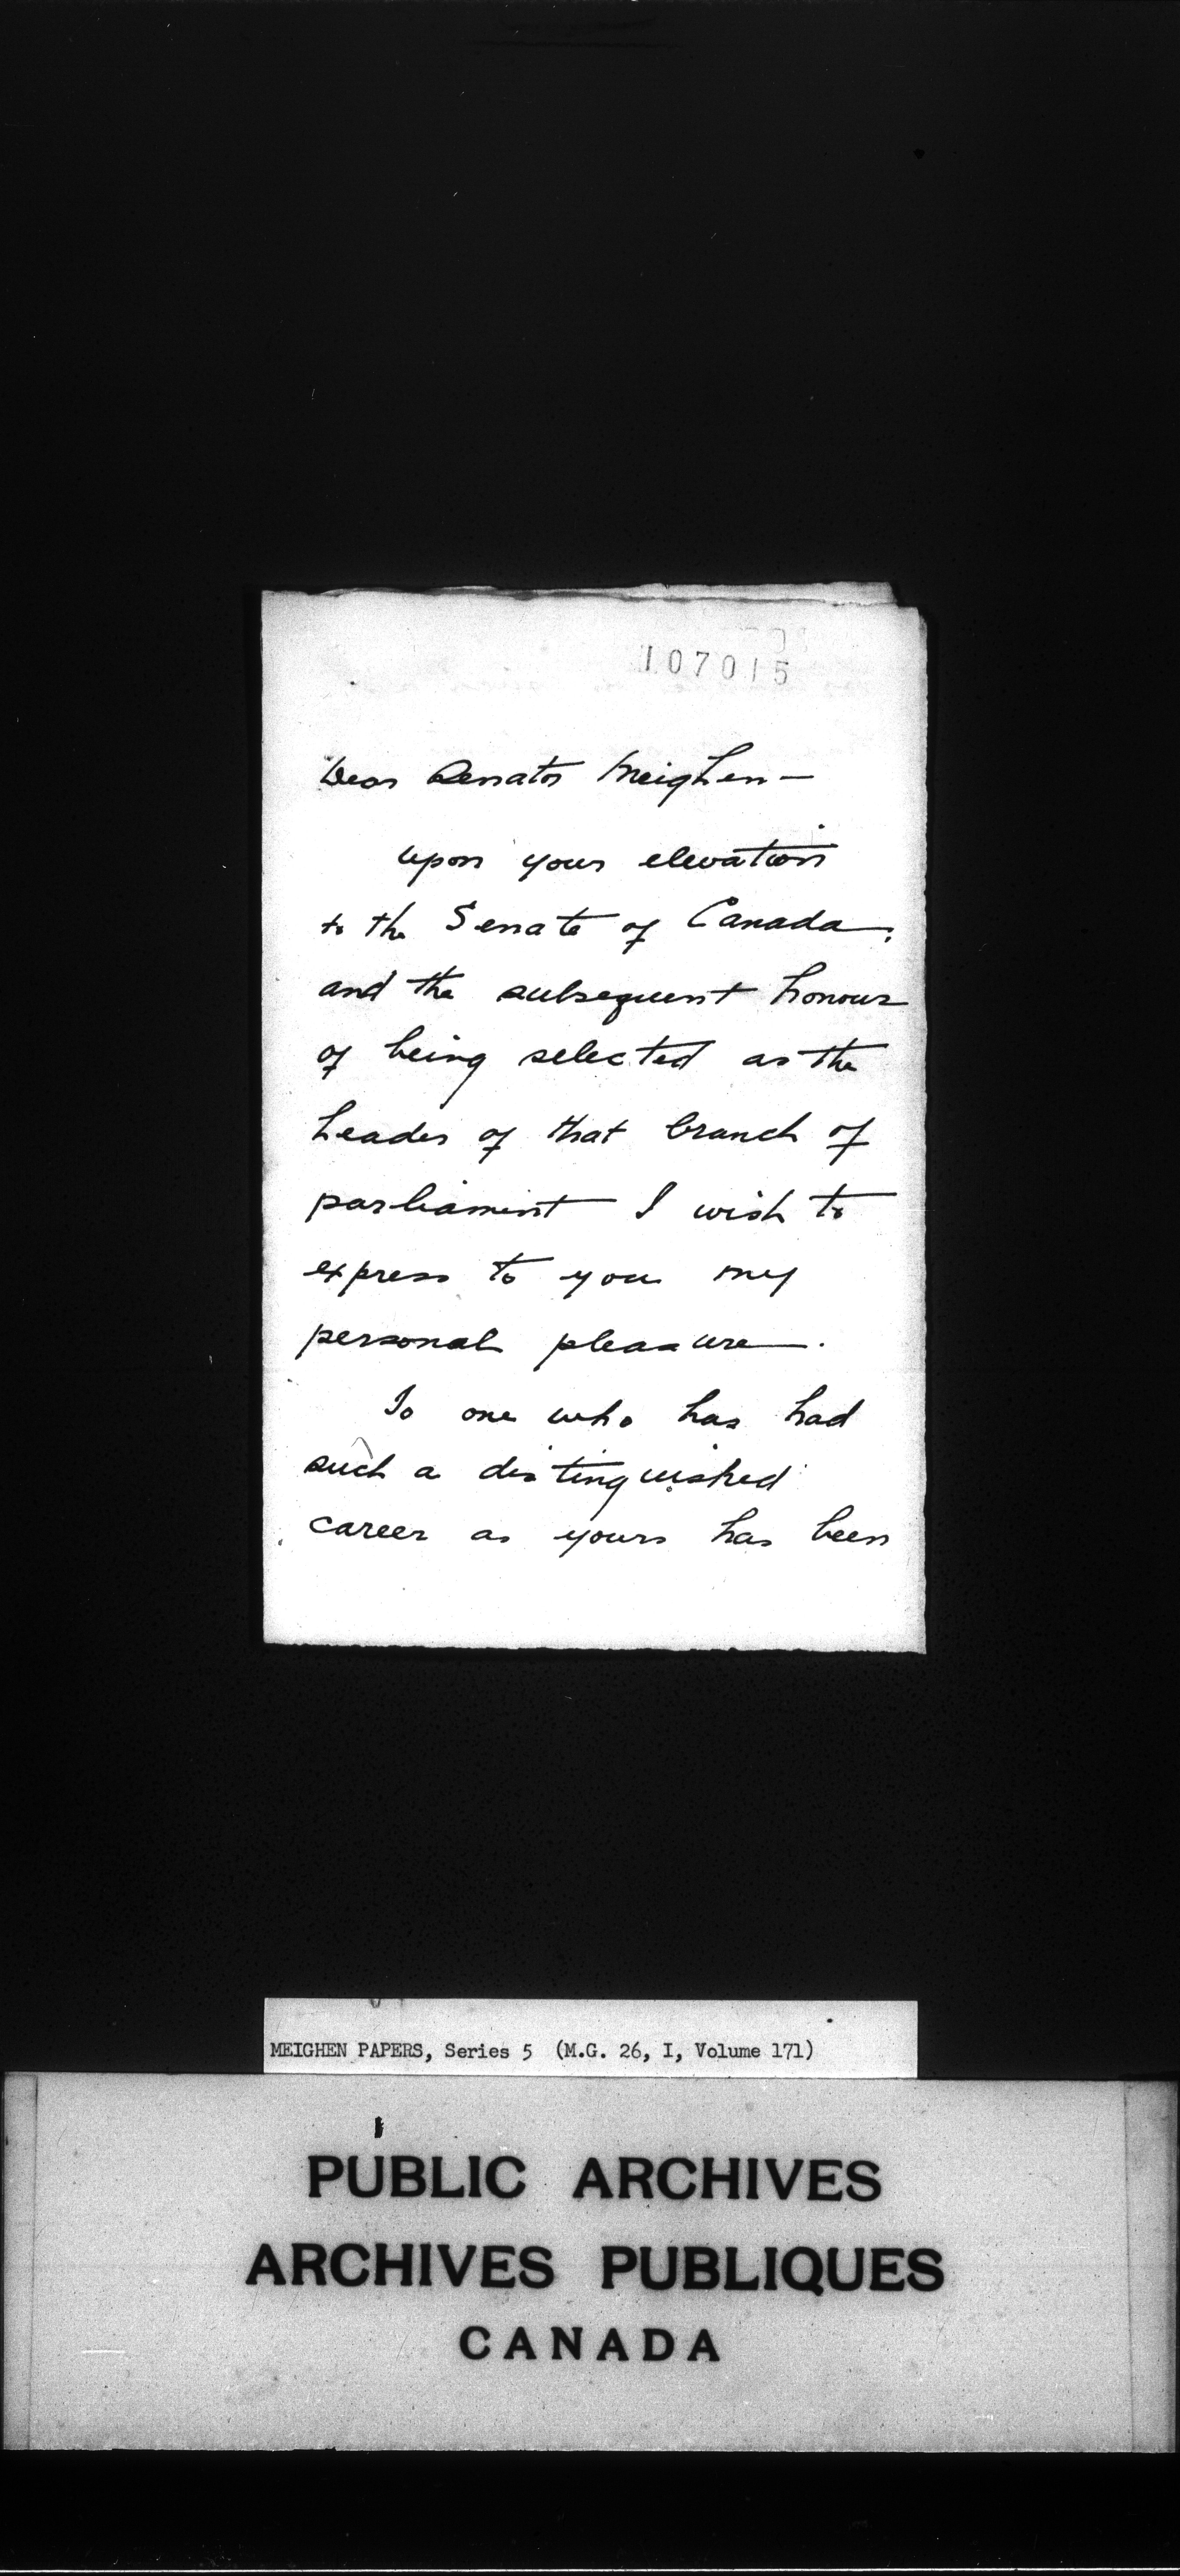 107015
Dear Senator Meighen —
upon your elevation
to the Senate of Canada,
and the subsequent honour
of being selected as the
Leader of that branch of
parliament I wish to
express to you my
personal pleasure.
To one who has had
such a distinguished
career as yours has been
MEIGHEN PAPERS, Series 5 (M.G. 26, I, Volume 171)
PUBLIC ARCHIVES
ARCHIVES PUBLIQUES
CANADA